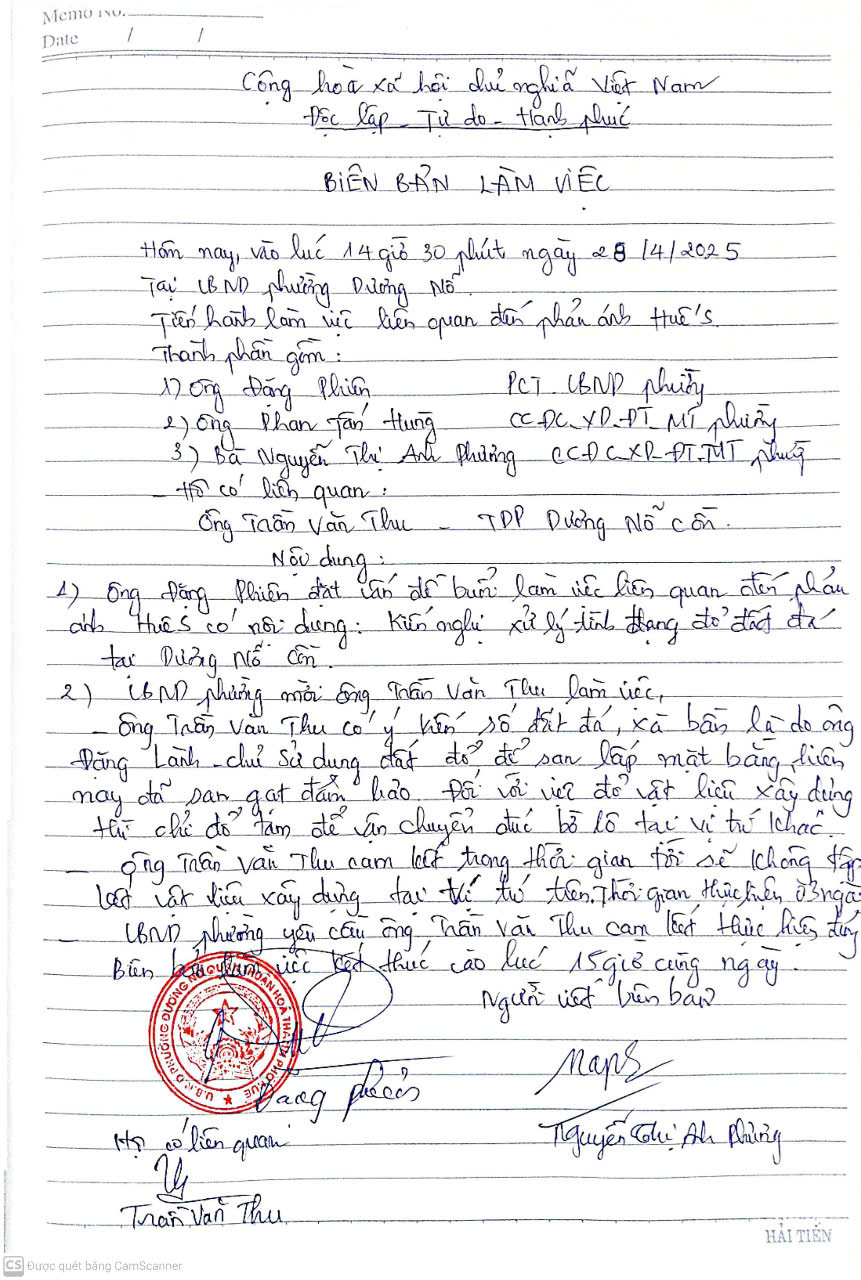 Memo No.
Date / /
Cộng hoà xã hội chủ nghĩa Việt Nam
Độc lập - Tự do - Hạnh phúc
BIÊN BẢN LÀM VIỆC
Hôm nay, vào lúc 14 giờ 30 phút ngày 28/4/2025
Tại UBND phường Dương Nỗ.
Tiến hành làm việc liên quan đến phản ánh Huế S.
Thành phần gồm:
1) Ông Đặng Phiên PCT. UBND phường
2) Ông Phan Tấn Hưng CCĐC-XD-ĐT-MT phường
3) Bà Nguyễn Thị Anh Phương CCĐC-XD-ĐT-MT phường
- Hộ có liên quan:
Ông Trần Văn Thu - TDP Dương Nỗ Cồn.
Nội dung:
1) Ông Đặng Phiên đặt vấn đề buổi làm việc liên quan đến phản
ánh Huế S có nội dung: Kiến nghị xử lý tình trạng đổ đất đá
tại Dương Nỗ Cồn.
2) UBND phường mời ông Trần Văn Thu làm việc,
- Ông Trần Văn Thu có ý kiến số đất đá, xà bần là do ông
Đặng Lành - chủ sử dụng đất đổ để san lấp mặt bằng, hiện
nay đã san gạt đảm bảo. Đối với việc đổ vật liệu xây dựng
thì chỉ đổ tạm để vận chuyển đúc bờ lô tại vị trí khác.
- Ông Trần Văn Thu cam kết trong thời gian tới sẽ không tập
kết vật liệu xây dựng tại vị trí trên. Thời gian thực hiện 03 ngày
- UBND phường yêu cầu ông Trần Văn Thu cam kết thực hiện đúng
Biên bản làm việc kết thúc vào lúc 15 giờ cùng ngày.
Người viết biên bản
U.B.N.D PHƯỜNG DƯƠNG NỖ QUẬN THUẬN HOÁ THÀNH PHỐ HUẾ
Đặng Phiên
Nguyễn Thị Anh Phương
Hộ có liên quan
Trần Văn Thu
HẢI TIẾN
CS Được quét bằng CamScanner